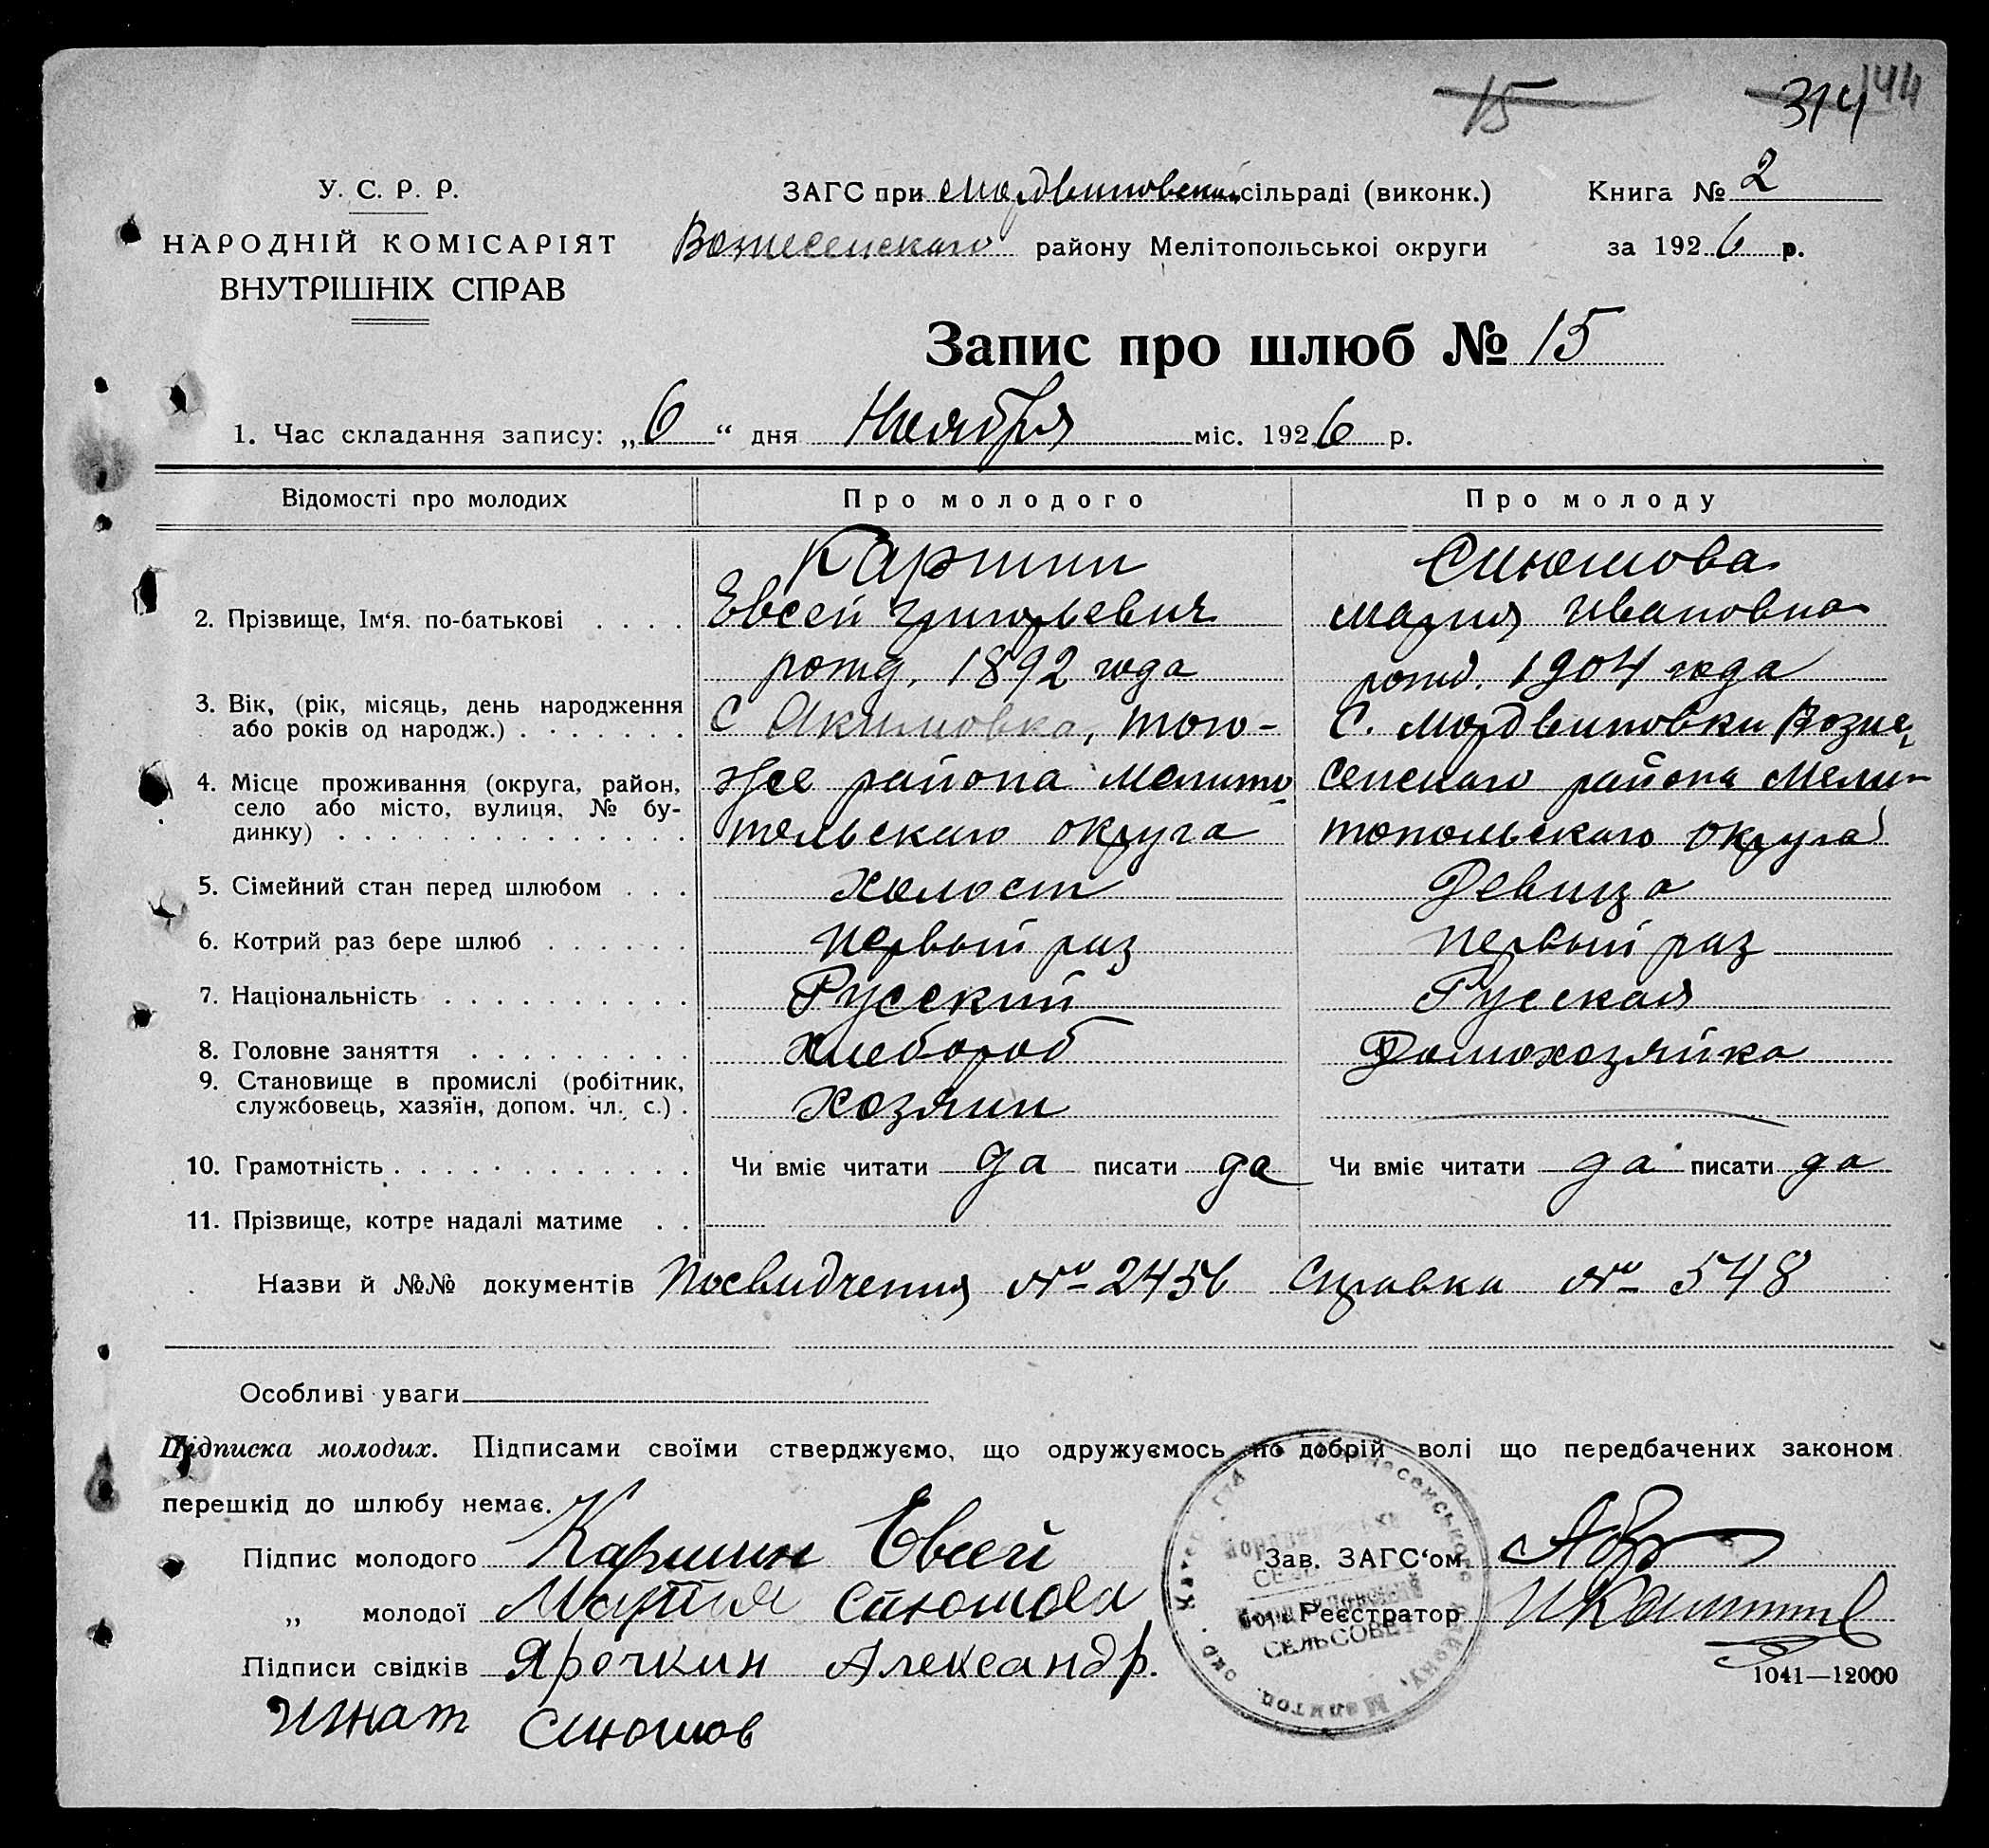 15 314 144
У. С. Р. Р.
НАРОДНІЙ КОМІСАРІЯТ
ВНУТРІШНІХ СПРАВ
ЗАГС при Мордвиновский сільраді (виконк.)
Книга № 2
Вознесенскаго району Мелітопольської округи
за 1926 р.
Запис про шлюб № 15
1. Час складання запису: „6“ дня Ноября міс. 1926 р.
Відомості про молодих
Про молодого
Про молоду
2. Прізвище, Ім‘я, по-батькові
Каршин
Евсей Григорьевич
Синюшова
Мария Ивановна
3. Вік, (рік, місяць, день народження
або років од народж.)
рожд. 1892 года
рожд. 1904 года
4. Місце проживання (округа, район,
село або місто, вулиця, № бу-
динку)
С Акимовка, того-
же района Мелито
польскаго округа
С. Мордвиновки Возне
сенскаго района Мели-
топольскаго округа
5. Сімейний стан перед шлюбом
холост
Девица
6. Котрий раз бере шлюб
первый раз
первый раз
7. Національність
Русский
Русская
8. Головне заняття
хлебороб
Домохозяйка
9. Становище в промислі (робітник,
службовець, хазяїн, допом. чл. с.)
хозяин
10. Грамотність
Чи вміє читати да писати да
Чи вміє читати да писати да
11. Прізвище, котре надалі матиме
Назви й №№ документів Посвидчения № 2456 Справка № 548
Особливі уваги
Підписка молодих. Підписами своїми стверджуємо, що одружуємось по добрій волі що передбачених законом
перешкід до шлюбу немає.
Підпис молодого Каршин Евсей
Зав. ЗАГС‘ом
„ молодої Мария Синюшова
Реєстратор
Підписи свідків Ярочкин Александр.
СЕЛЬСОВЕТ
1041—12000
Игнат Синюшов